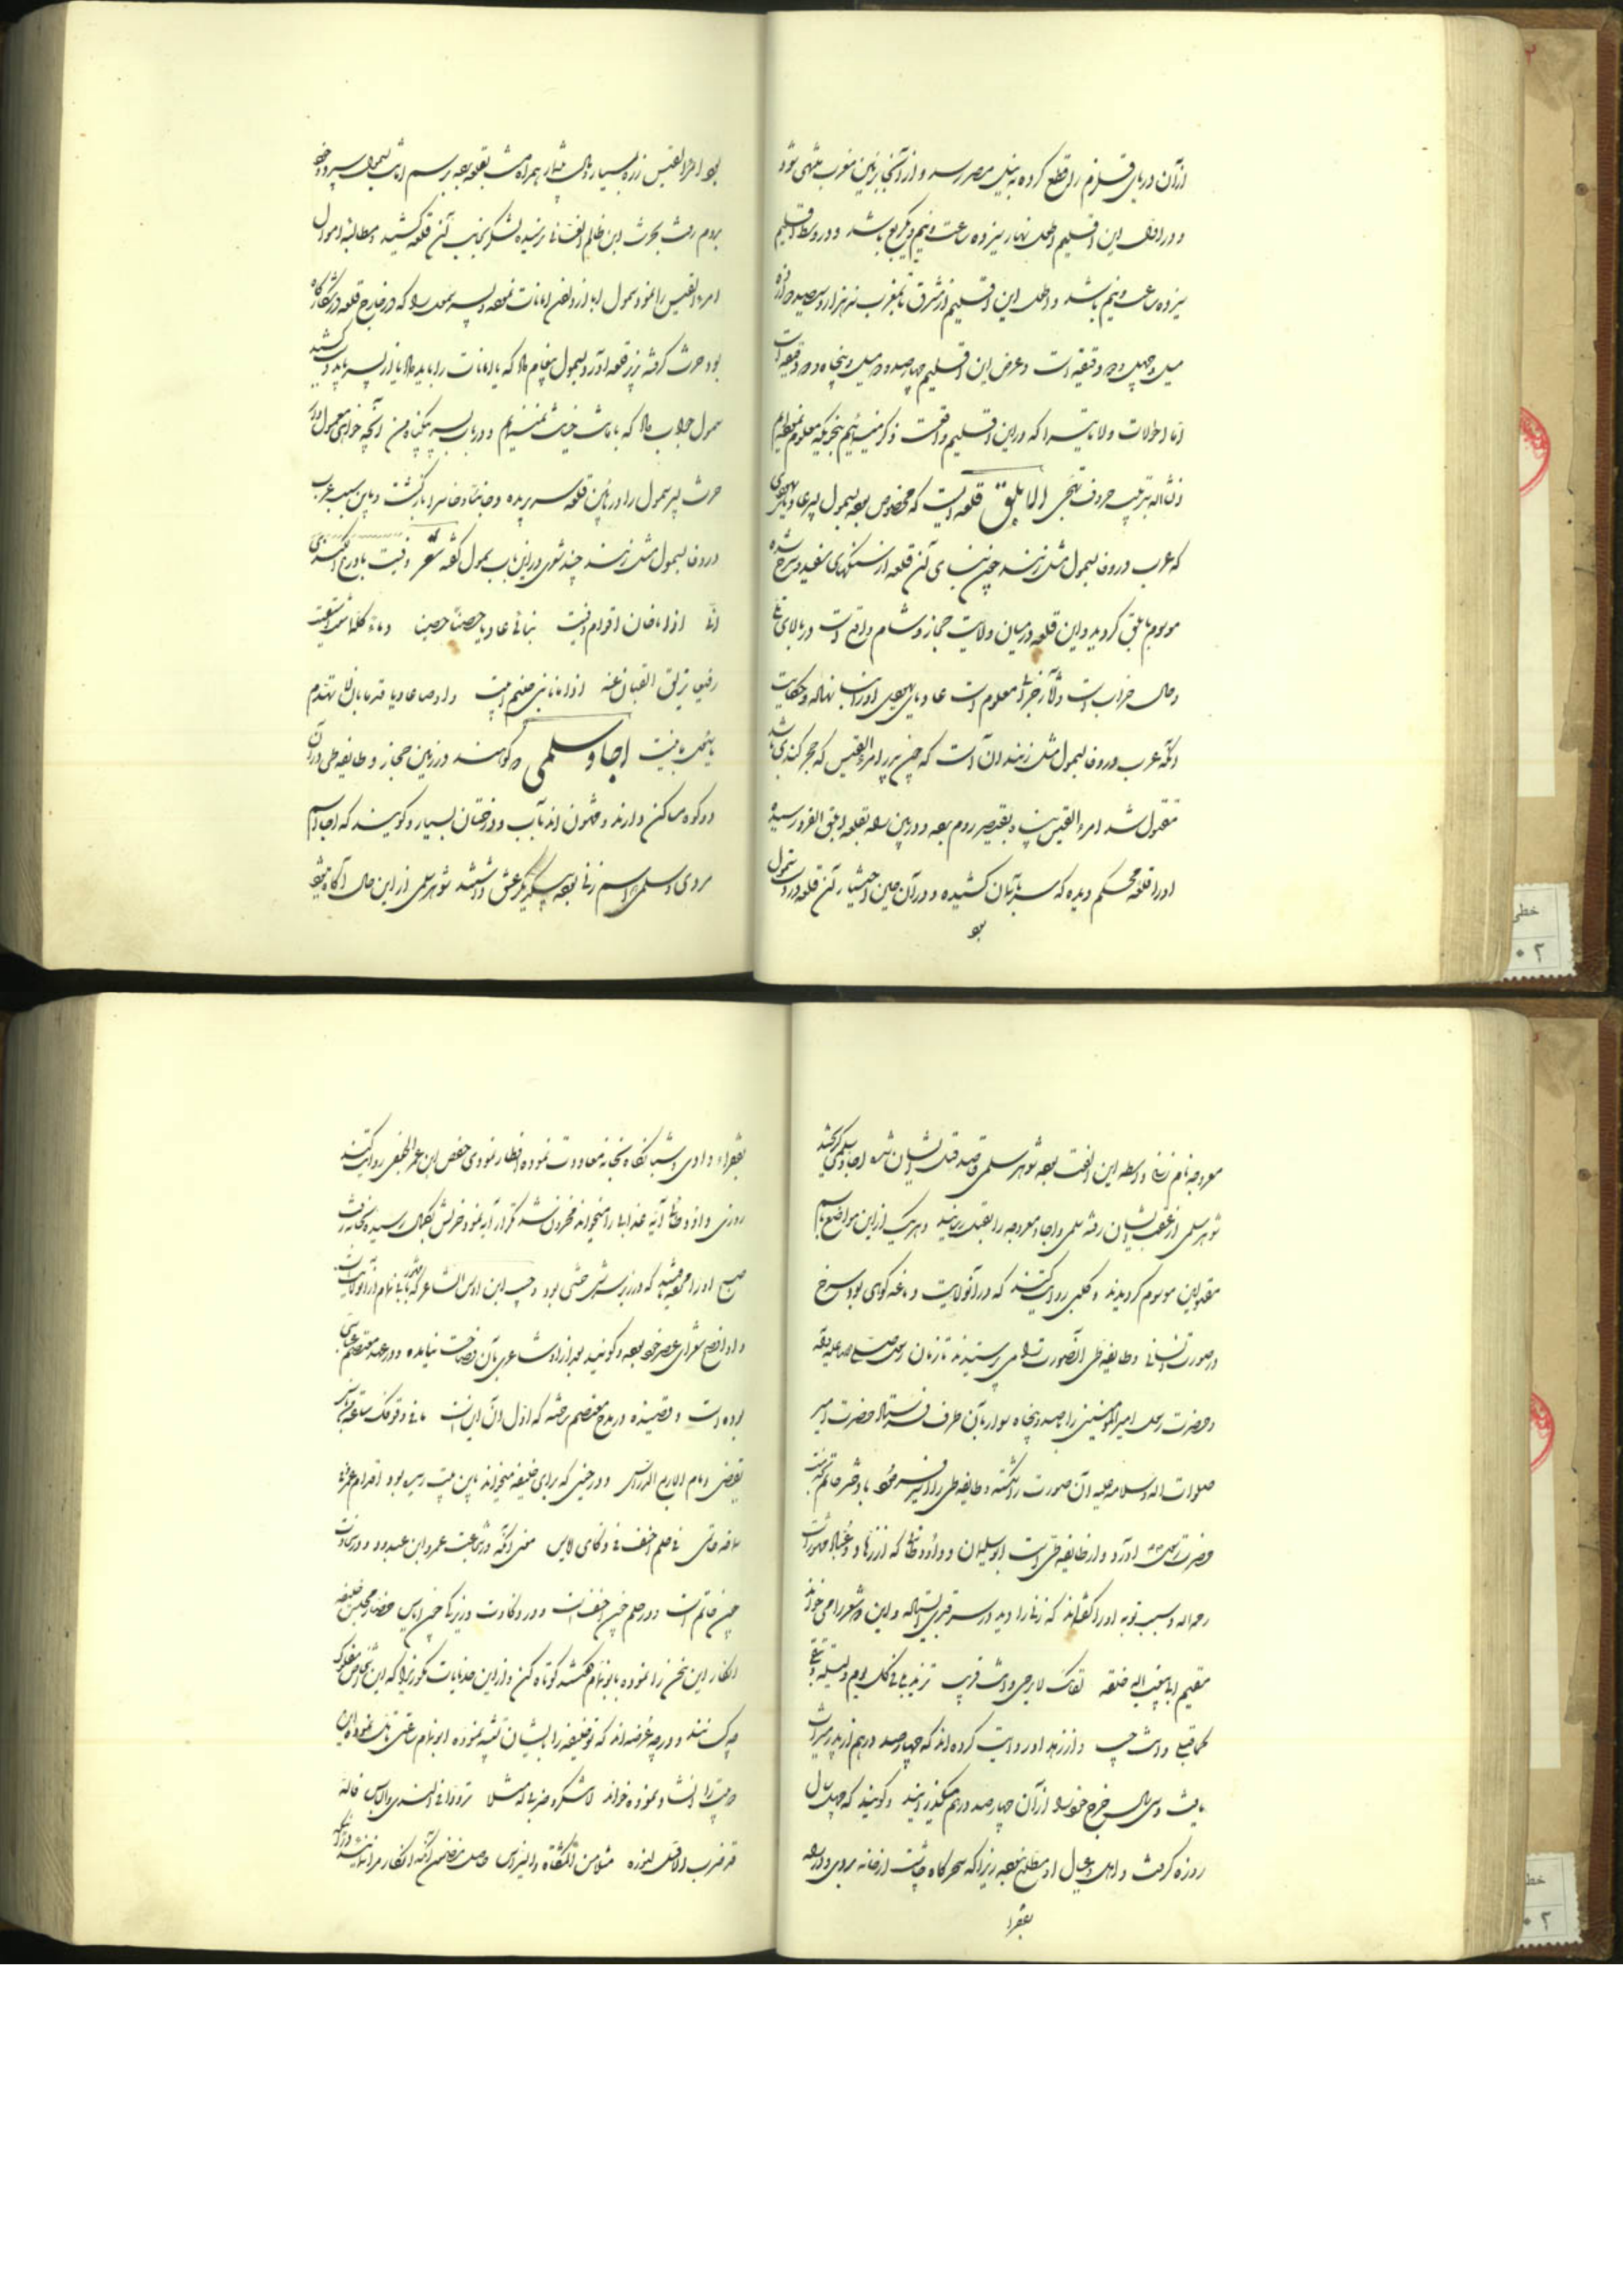 ازآن دریای قلزم را قطع کرده به نیل مصر رسد و از آنجا بزمین مغرب منتهی شود
و در اول این اقلیم طول نهار سیزده ساعت و نیم و یکربع باشد و در وسط اقلیم
سیزده ساعت و نیم باشد و طول این اقلیم از مشرق تا بمغرب نه هزار و سیصد و دوازده
میل و چهل و دو دقیقه است و عرض این اقلیم چهارصد و دو میل و پنجاه و دو دقیقه است
اما احوالات ولایاتیرا که در این اقلیم واقعست ذکر مینمائیم بنحویکه معلوم نموده‌ایم
انشاء الله بترتیب حروف تهجی الابلق قلعه‌ایست که مخصوص بوده بسمول پسر عادیای یهودی
که عرب در وفا بسمول مثل زنند چون بنای آن قلعه از سنگهای سفید و سرخ شده
موسوم بابلق گردید و این قلعه در میان ولایت حجاز و شام واقع است در بالای تلی
و حال خراب است و از آثار خرابها معلوم است عادیای یهودی اورا بنا نهاده و حکایت
آنکه عرب در وفا بسمول مثل زنند آن است که چون پدر امرءالقیس که حجر کندی باشد
مقتول شد امرءالقیس پناه بقیصر روم برده و در بین راه بقلعه ابلق الفرد رسیده
اورا قلعه محکم دیده که سر بآسمان کشیده و در آن حین اختیار آن قلعه در دست سمول
بود
بود امرءالقیس زره بسیار و مال بیشمار همراه داشت بقلعه برده برسم امانت بسمول سپرد و خود
بروم رفت حرث ابن ظالم الغسانی شنیده لشکر بجانب آن قلعه کشید و مطالبه اموال
امرءالقیس را نمود سمول ابا از دادن امانات نموده و پسر سمول را که در خارج قلعه در شکارگاه
بود حرث گرفته بزیر قلعه آورد و بسمول پیغام داد که یا امانات را باید داد یا از پسر باید دست کشید
سمول جواب داد که بامانت خیانت نمیکنم و در باب پسر بیگناه من آنچه خواهی معمول دار
حرث پسر سمول را در پائین قلعه سر بریده و خائبا و خاسرا بازگشت و باین سبب عرب
در وفا بسمول مثل زنند چند شعری در این باب سمول گفته شعر وفیت بادرع الکندی
انی اذا ما خان اقوام وفیت بنا لی عادیا حصنا حصینا و ماء کلما شئت استقیت
رفیعا تزلق العقبان عنه اذا ما نابنی ضیم ابیت و اوصا عادیا قدما بان لا تهدم
یا سمول ما بنیت اجا و سلمی دو کوهند در زمین حجاز و طایفه طی در آن
دو کوه مساکن دارند و مشحون اند بآب و درختان بسیار و گویند که اجا اسم
مردی و سلمی اسم زنی بوده بیکدیگر عشق داشتند شوهر سلمی از این حال آگاه شد
معروجه نام زنی واسطه این الفت بوده شوهر سلمی قاصد قتل ایشان شده اجا و سلمی گریختند
شوهر سلمی از عقب ایشان رفته سلمی و اجا و معروجه را بقتل رسانید و هر یک از این مواضع باسم
مقتولین موسوم گردیدند و کلبی روایت کند که در آنولایت دماغه کوهی بود سرخ
در صورت انسانی و طایفه طی آنصورت را می پرستیدند تا زمان رسول صلی الله علیه و آله
و حضرت رسول امیرالمؤمنین را با صد و پنجاه سوار بآن طرف فرستاد حضرت امیر
صلوات الله و سلامه علیه آن صورت را شکسته و طایفه طی را اسیر فرمود با دختر حاتم که بخدمت
حضرت رسول آورد و از طایفه طی است ابوسلیمان و داود طائی که از زهاد و عباد مشهور است
رحمه الله و سبب توبه اورا گفته‌اند که زنی را دید در سر قبری ایستاده و این دو شعر را می خواند
مقیم الی ان یبعث الله خلقه لقائک لا یرجی و انت قریب تزید بلی فی کل یوم و لیله و تبلی
کما تبلی و انت حبیب و از زهد او روایت کرده اند که چهارصد درهم از پدر میراث
یافت و سی سال خرج خود را از آن چهارصد درهم میگذرانید و گویند که چهل سال
روزه گرفت و اهل و عیال او مطلع نبوده زیرا که سحرگاه چاشت از خانه بردی و در راه
بفقرا
بفقراء دادی و شبانگاه بخانه معاودت نموده افطار نمودی حفص ابن عمر الجعفی روایت کند
روزی داود طائی آیه عذاب را میخواند محزون شد تکرار آیه نمود حزنش بکمال رسیده بخانه رفت
صبح اورا مرده یافتند که در زیر سرش خشتی بود و حبیب ابن اوس الشاعر که مشهور بابا تمام از آنولایت است
و او افصح شعرای عصر خود بوده و گویند بعد از او شاعری بآن فصاحت نیامده و در عهد معتصم عباسی
بوده است و قصیده در مدح معتصم گفته که اول آن این است ما فی وقوفک ساعة من باس
تقضی ذمام الاربع الادراس و در حینی که برای خلیفه میخواند باین بیت رسیده بود اقدام عمرو
سماحه حاتم فی حلم احنف فی ذکاء ایاس معنی آنکه در شجاعت عمرو ابن عبدود و در سخاوت
چون حاتم است و در حلم چون احنف است و در ذکاوت و زیرکی چون ایاس حضار مجلس خلیفه
انکار این سخن را نموده بابو تمام گفتند کوتاه کن و از این حدیثات مگو زیرا که این اشخاص مفلوک
چه کسانند و در چه عرضه اند که تو خلیفه را بایشان تشبیه نموده ابوتمام ساعتی تامل نموده این
دو بیت را انشاد نموده خواند لا تنکروا ضربی له مثلا شرودا فی الندی و الباس فالله
قد ضرب الاقل لنوره مثلا من المشکاة و النبراس